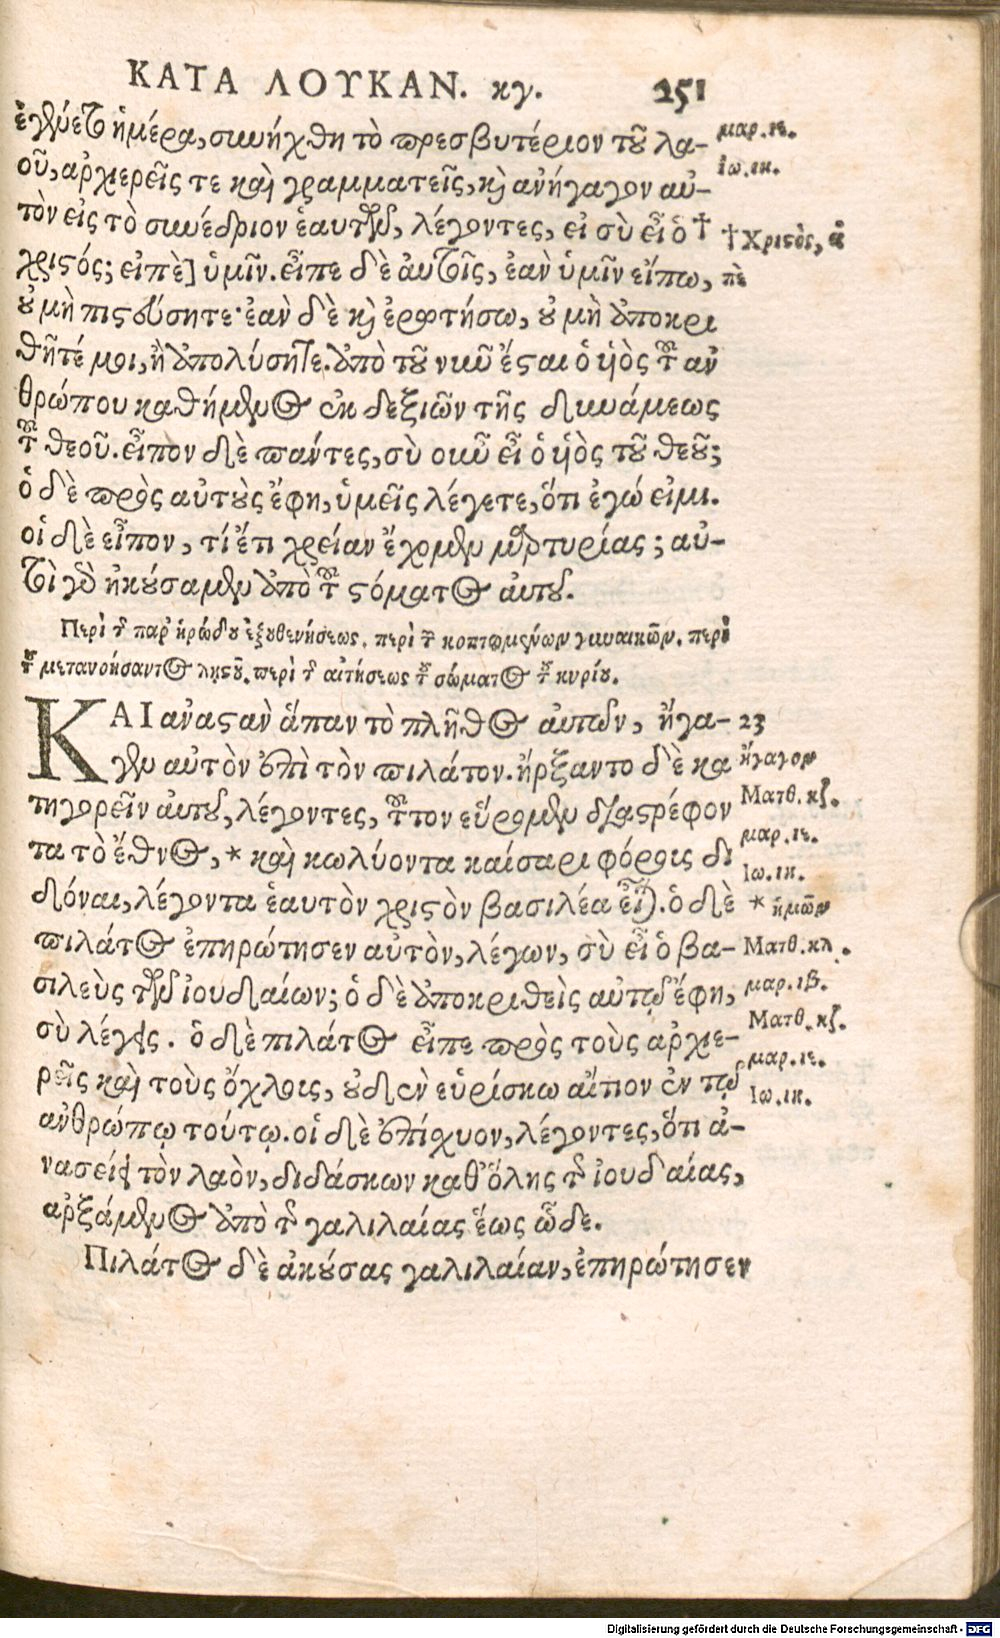 ΚΑΤΑ ΛΟΥΚΑΝ. κγ. 251
ἐγένετο ἡμέρα, συνήχθη τὸ πρεσβυτέριον τοῦ λα-
οῦ, ἀρχιερεῖς τε καὶ γραμματεῖς, καὶ ἀνήγαγον αὐ-
τὸν εἰς τὸ συνέδριον ἑαυτῶν, λέγοντες, εἰ σὺ εἶ ὁ †
χριστός; εἰπὲ] ὑμῖν. εἶπε δὲ αὐτοῖς, ἐὰν ὑμῖν εἴπω,
οὐ μὴ πιστεύσητε· ἐὰν δὲ καὶ ἐρωτήσω, οὐ μὴ ἀποκρι
θῆτέ μοι, ἢ ἀπολύσητε. ἀπὸ τοῦ νῦν ἔσται ὁ υἱὸς τοῦ ἀν
θρώπου καθήμενος ἐκ δεξιῶν τῆς δυνάμεως
τοῦ θεοῦ. εἶπον δὲ πάντες, σὺ οὖν εἶ ὁ υἱὸς τοῦ θεοῦ;
ὁ δὲ πρὸς αὐτοὺς ἔφη, ὑμεῖς λέγετε, ὅτι ἐγώ εἰμι.
οἱ δὲ εἶπον, τί ἔτι χρείαν ἔχομεν μαρτυρίας; αὐ-
τοὶ γὰρ ἠκούσαμεν ἀπὸ τοῦ στόματος αὐτοῦ.
Περὶ τῆς παρ' ἡρώδου ἐξουθενήσεως. περὶ τῶν κοπτομένων γυναικῶν. περὶ
τοῦ μετανοήσαντος λῃστοῦ. περὶ τῆς αἰτήσεως τοῦ σώματος τοῦ κυρίου.
ΚΑΙ ἀναστὰν ἅπαν τὸ πλῆθος αὐτῶν, ἤγα-
γεν αὐτὸν ἐπὶ τὸν πιλάτον. ἤρξαντο δὲ κα
τηγορεῖν αὐτοῦ, λέγοντες, τοῦτον εὕρομεν διαστρέφον
τα τὸ ἔθνος, * καὶ κωλύοντα καίσαρι φόρους δι
δόναι, λέγοντα ἑαυτὸν χριστὸν βασιλέα εἶναι. ὁ δὲ
πιλάτος ἐπηρώτησεν αὐτὸν, λέγων, σὺ εἶ ὁ βα-
σιλεὺς τῶν ἰουδαίων; ὁ δὲ ἀποκριθεὶς αὐτῷ ἔφη,
σὺ λέγεις. ὁ δὲ πιλάτος εἶπε πρὸς τοὺς ἀρχιε-
ρεῖς καὶ τοὺς ὄχλους, οὐδὲν εὑρίσκω αἴτιον ἐν τῷ
ἀνθρώπῳ τούτῳ. οἱ δὲ ἐπίσχυον, λέγοντες, ὅτι ἀ-
νασείει τὸν λαὸν, διδάσκων καθ' ὅλης τῆς ἰουδαίας,
ἀρξάμενος ἀπὸ τῆς γαλιλαίας ἕως ὧδε.
Πιλάτος δὲ ἀκούσας γαλιλαίαν, ἐπηρώτησεν
μαρ. ιε.
ἰω. ιη.
† Χριστὸς, εἰ
πὲ
23
ἤγαγον
Ματθ. κζ.
μαρ. ιε.
Ιω. ιη.
* ἡμῶν
Ματθ. κλ.
μαρ. ιβ.
Ματθ. κζ.
μαρ. ιε.
Ιω. ιη.
Digitalisierung gefördert durch die Deutsche Forschungsgemeinschaft - DFG